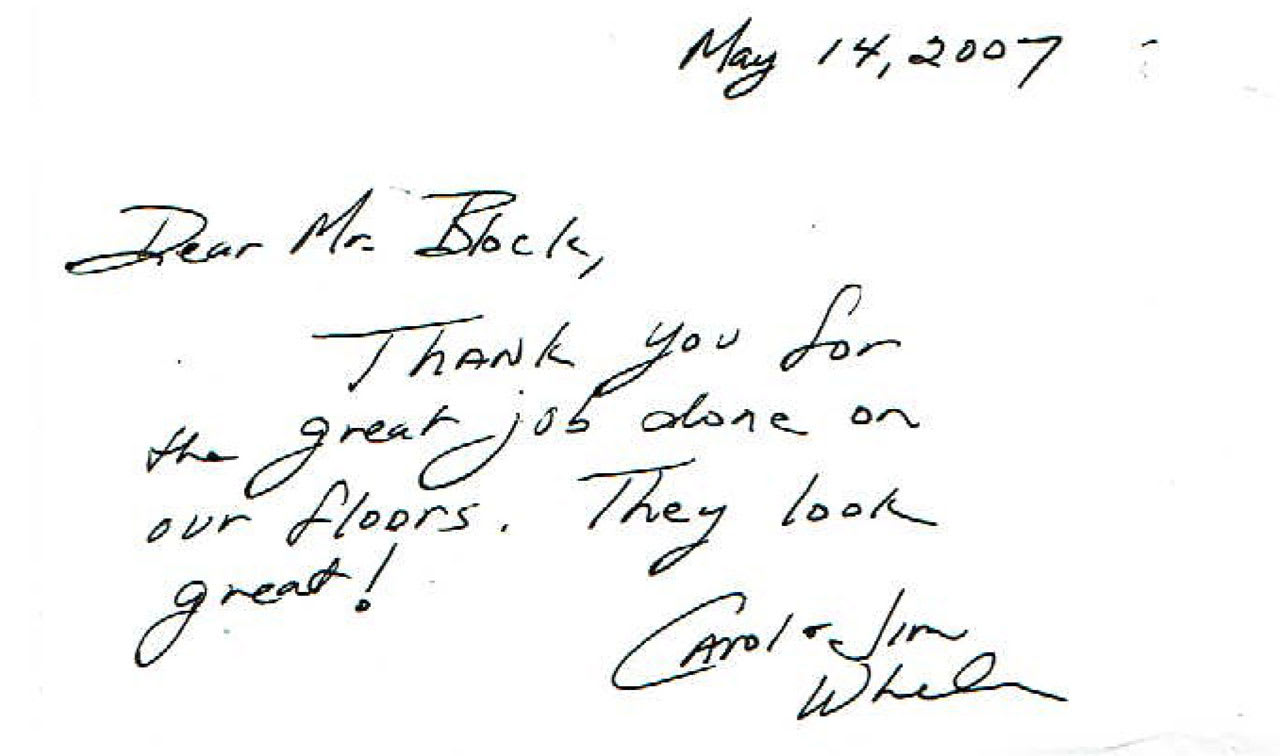 May 14, 2007
Dear Mr. Block,
Thank you for
the great job done on
our floors. They look
great!
Carol & Jim